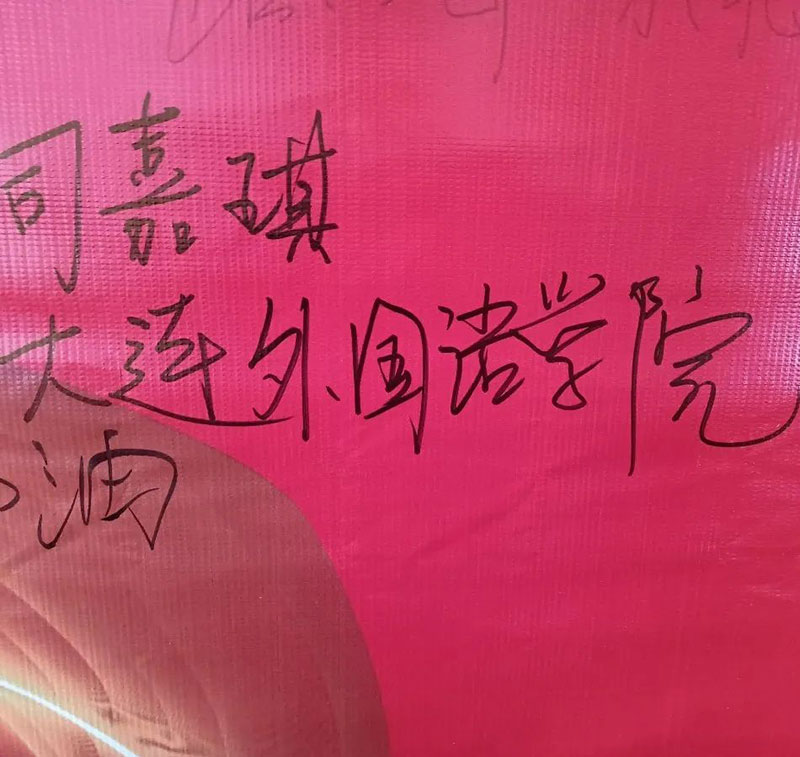 司嘉琪
大连外国语学院
油